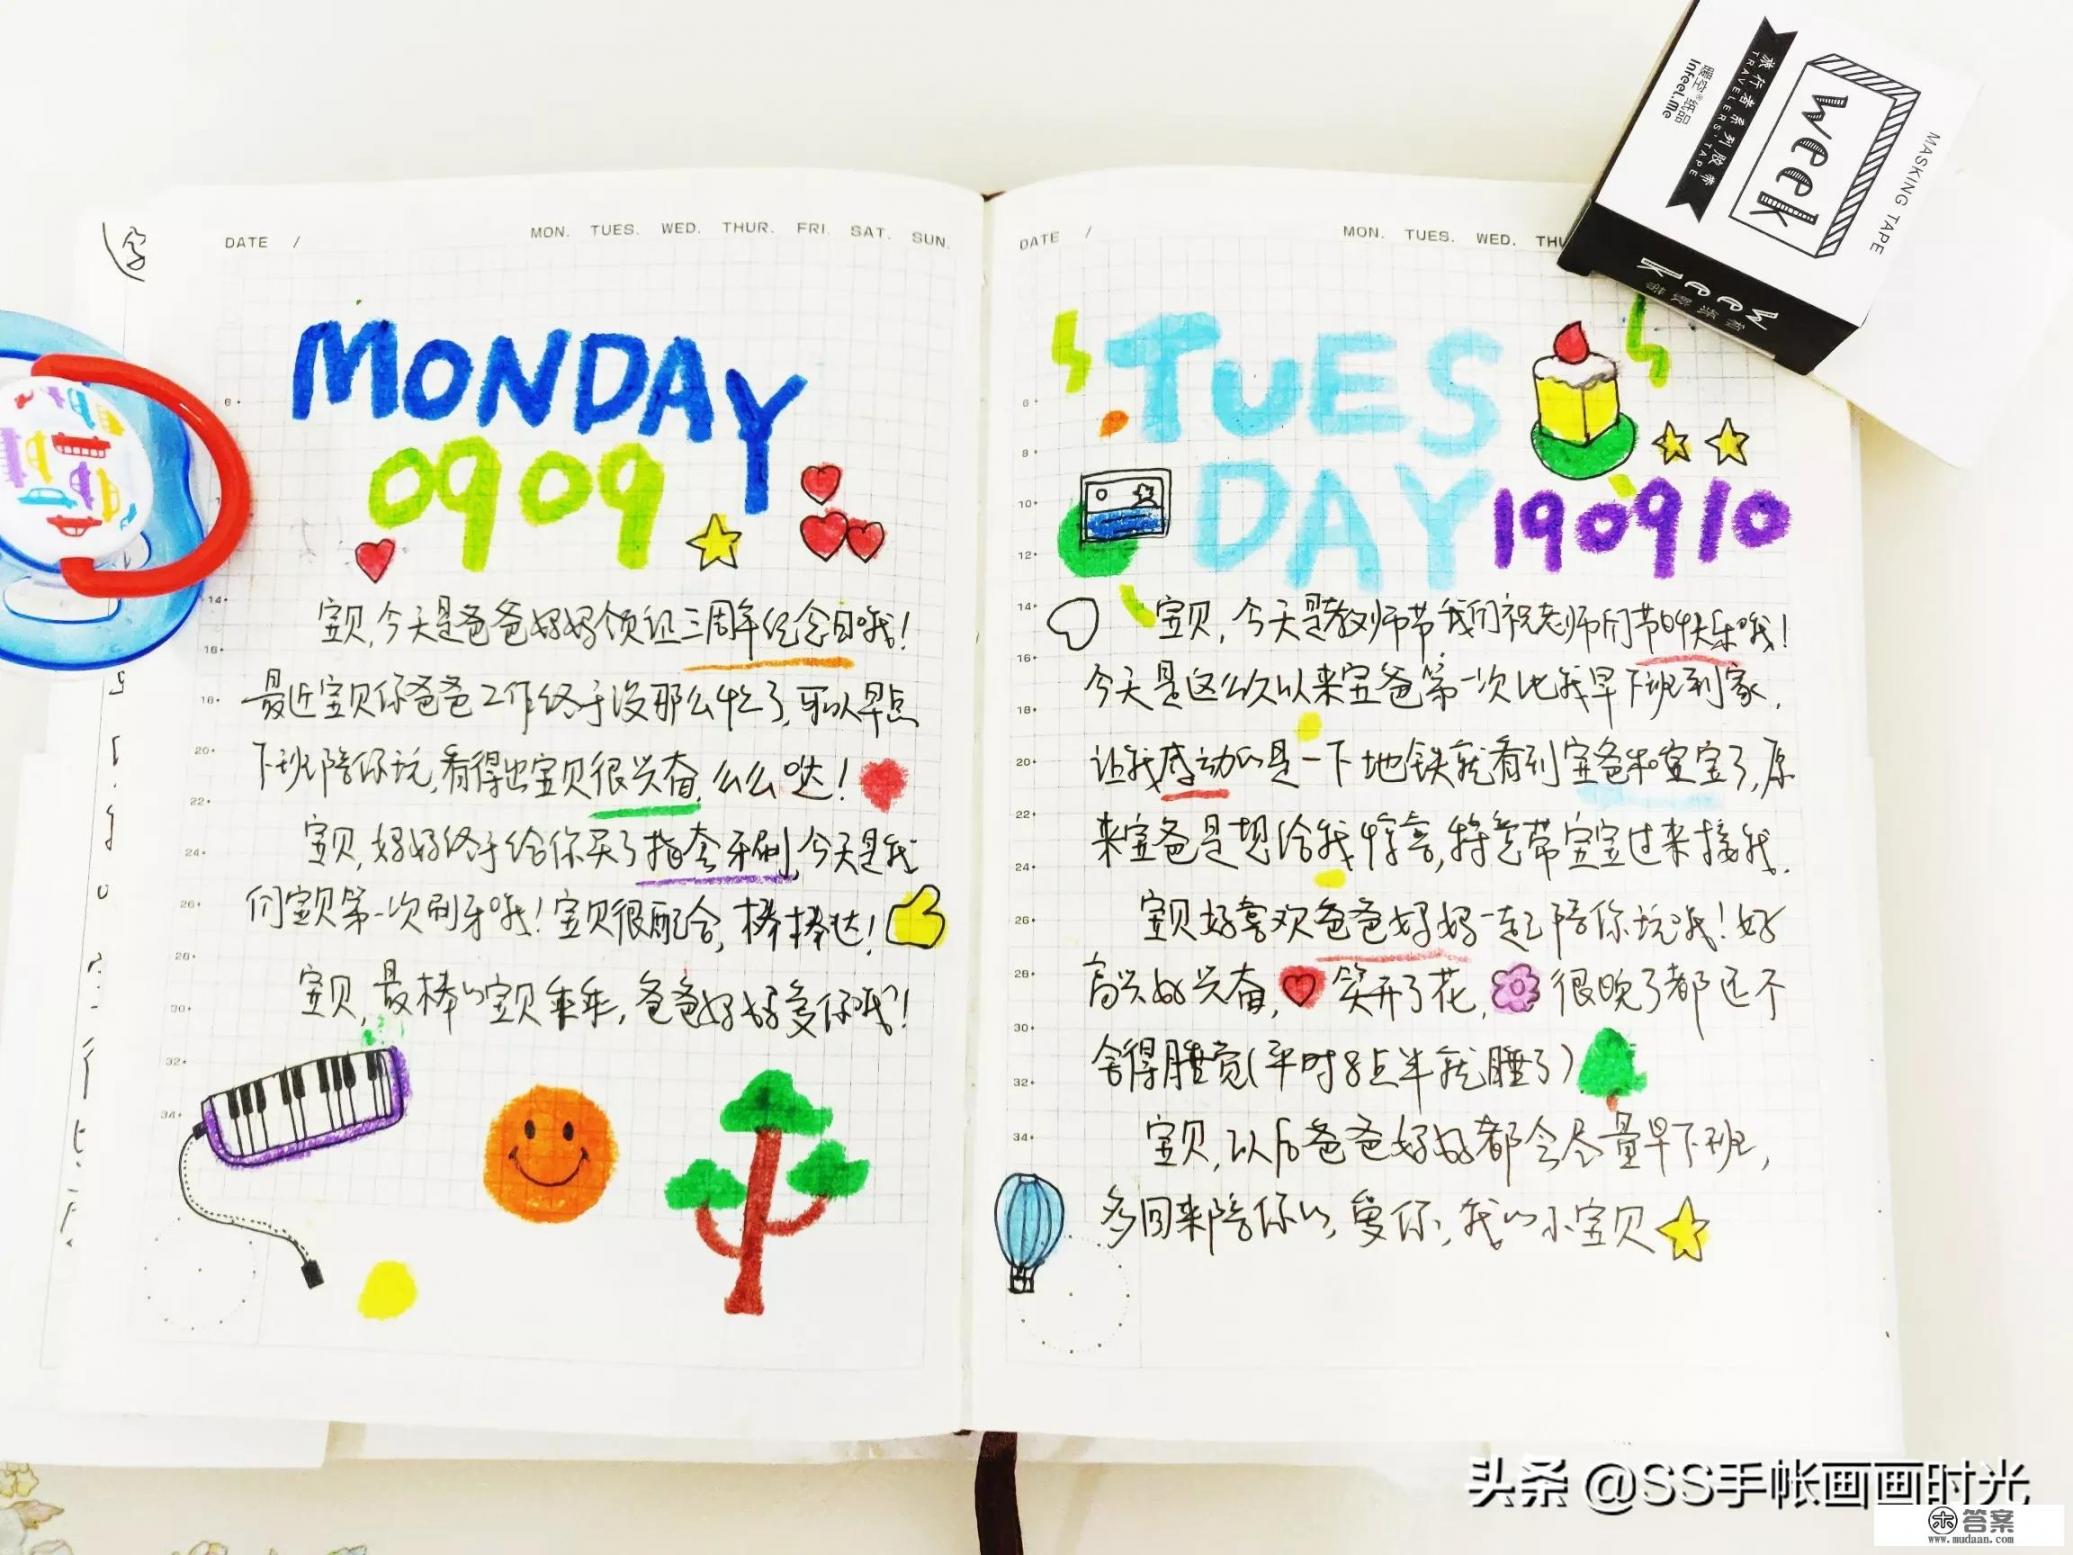 DATE /
MON. TUES. WED. THUR. FRI. SAT. SUN.
MONDAY
0909
宝贝,今天是爸爸妈妈领证三周年纪念日哦!
最近宝贝你爸爸工作终于没那么忙了,可以早点
下班陪你玩,看得出宝贝很兴奋,么么哒!
宝贝,妈妈终于给你买了指套牙刷,今天是我
们宝贝第一次刷牙哦!宝贝很配合,棒棒哒!
宝贝,最棒的宝贝乖乖,爸爸妈妈爱你哦!
DATE /
MON. TUES. WED. THU
TUES
DAY 190910
宝贝,今天是教师节我们祝老师们节日快乐哦!
今天是这么久以来宝爸第一次比我早下班到家,
让我感动的是一下地铁就看到宝爸和宝宝了,原
来宝爸是想给我惊喜,特意带宝宝过来接我.
宝贝好喜欢爸爸妈妈一起陪你玩哦!好
高兴好兴奋,笑开了花,很晚了都还不
舍得睡觉(平时8点半就睡了)
宝贝,以后爸爸妈妈都会尽量早下班,
多回来陪你的,爱你,我的小宝贝
MASKING TAPE
week
旅行者系列胶带
TRAVELERS, TAPE
暖空®纸品
InFeel.Me
Week
头条 @SS手帐画画时光
答案
www.mudaan.com